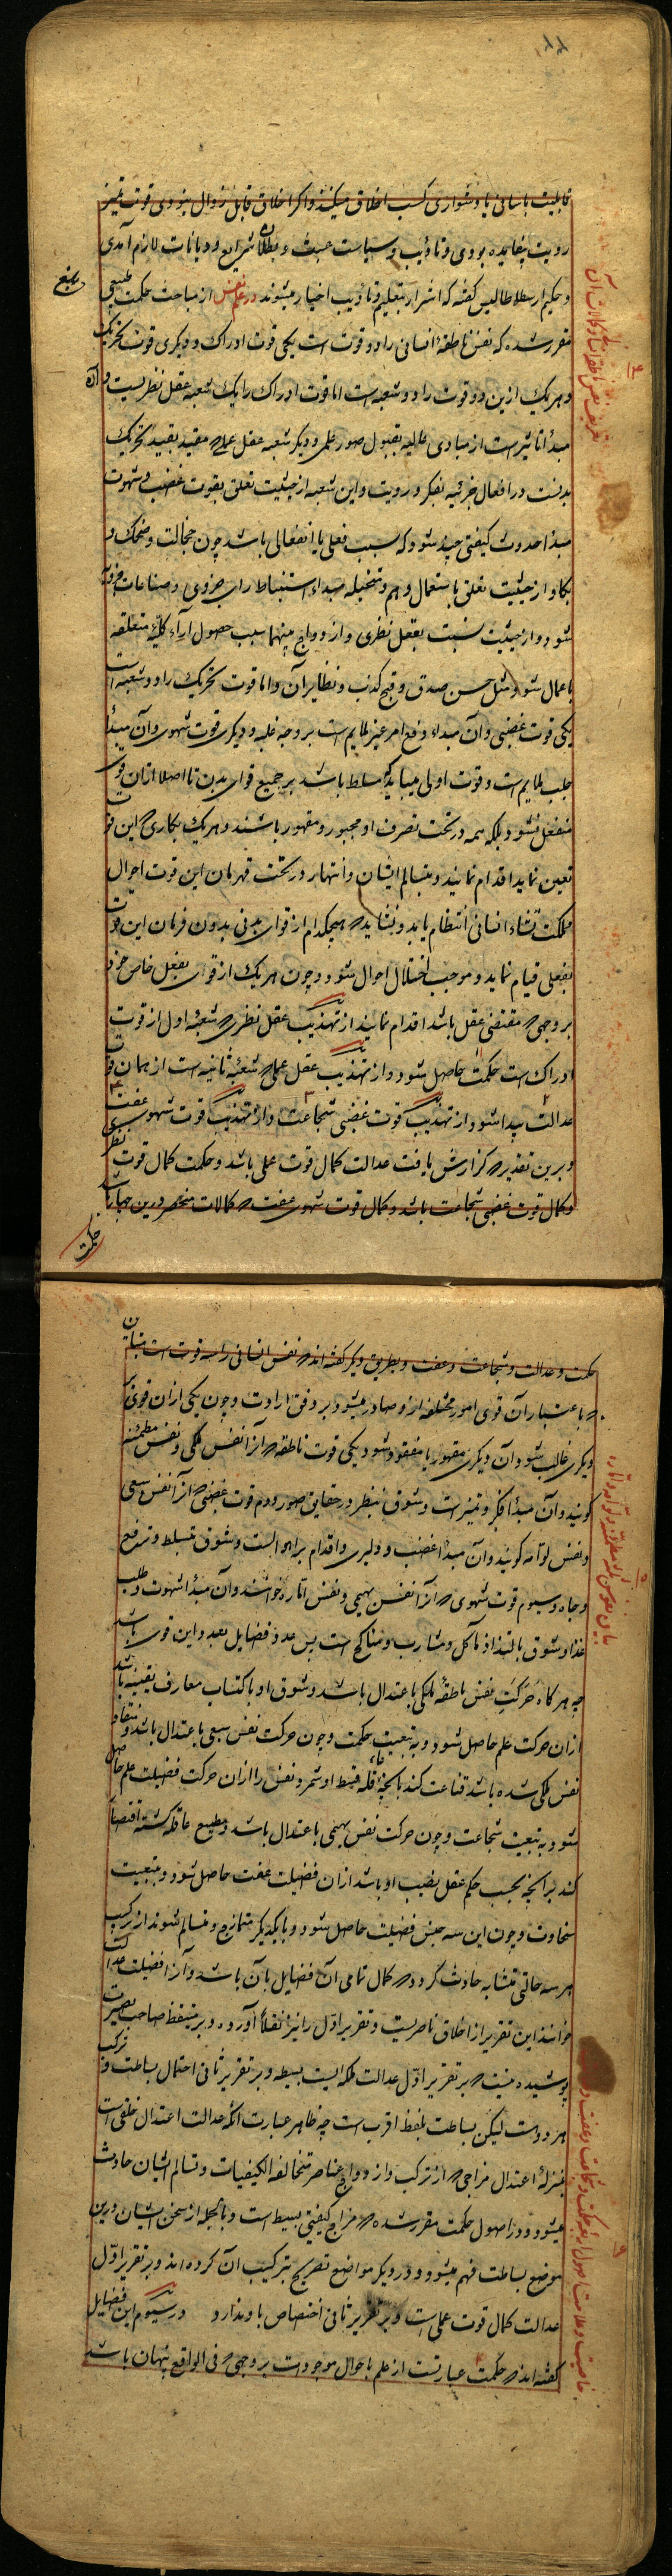 قابلیت باسانی یا دشواری کسب اخلاق میکنند و اکر اخلاق قابل زوال نبودی قوت تمیز
رویت بیفایده بودی و تأدیب و سیاست عبث و بطلان شرایع و دیانات لازم آمدی
و حکیم ارسطاطالیس کفته که اشرار بتعلیم و تأدیب اخیار میشوند در علم نفس از مباحث حکمت طبیعی
مقرر شده که نفس ناطقه انسانی را دو قوت است یکی قوت ادراک و دیکری قوت تحریک
و هر یک ازین دو قوت را دو شعبه است اما قوت ادراک را یک شعبه عقل نظریست و آن
مبدأ تاثیر است از مبادی عالیه بقبول صور علمی و دیکر شعبه عقل عملی که مقید بقید تحریک
بدنست در افعال جزئیه بفکر و رویت و این شعبه از حیثیت تعلق بقوت غضب و شهوت
مبدأ حدوث کیفیتی چند شود که سبب فعلی یا انفعالی باشد چون خجالت و ضحک و
بکا و از حیثیت تعلق باستعمال وهم و متخیله مبداء استنباط رای جزوی و صناعات جزویه
شود و از حیثیت نسبت بعقل نظری و ازدواج بینهما سبب حصول آراء کلیّه متعلقه
باعمال شود مثل حسن صدق و قبح کذب و نظایر آن و اما قوت تحریک را دو شعبه است
یکی قوت غضبی و آن مبداء دفع امر غیر ملایم است بر وجه غلبه و دیکری قوت شهوی و آن مبدأ
جلب ملایم است و قوت اولی میباید که مسلط باشد بر جمیع قوای بدن تا اصلا ازان قوی
منفعل نشود بلکه همه در تحت تصرف او مجبور و مقهور باشند و هر یک بکاری که این قوت
تعین نماید اقدام نمایند و بتسالم ایشان و انتهار در تحت قهرمان این قوت احوال
مملکت نشاء انسانی انتظام یابد و نشاید که هیچکدام از قوای بدنی بدون فرمان این قوت
بفعلی قیام نماید و موجب اختلال احوال شود و چون هر یک از قوی بفعل خاص خود
بر وجهی که مقتضی عقل باشد اقدام نمایند از تهذیب عقل نظری که شعبه اول از قوت
ادراک است حکمت حاصل شود و از تهذیب عقل عملی که شعبه ثانیه است از همان قوت
عدالت پیدا شود و از تهذیب قوت غضبی شجاعت و از تهذیب قوت شهوی عفت
و برین تقدیر که گزارش یافت عدالت کمال قوت عملی باشد و حکمت کمال قوت نظری
و کمال قوت غضبی شجاعت باشد و کمال قوت شهوی عفت که کمالات منحصر درین چهار باشد
حکمت
حکمت و عدالت و شجاعت و عفت و بطریق دیکر کفته اند که نفس انسانی را سه قوت است متباین
که باعتبار آن قوی امور مختلفه ازو صادر میشود بر وفق ارادت و چون یکی ازان قوی بر
دیکری غالب شود آن دیکری مقهور یا مفقود شود یکی قوت ناطقه که آنرا نفس ملکی و نفس مطمئنه
کویند و آن مبدأ فکر و تمیز است و شوق نظر در حقایق امور دوم قوت غضبی که آنرا نفس سبعی
و نفس لوّامه کویند و آن مبدأ غضب و دلیری و اقدام بر اهوالست و شوق تسلط و ترفع
و جاه و سیوم قوت شهوی که آنرا نفس بهیمی و نفس اماره خوانند و آن مبدأ شهوت و طلب
غذا و شوق بالتذاذ بمآکل و مشارب و مناکح است پس عدد فضایل بعدد این قوی باشد
چه هر کاه حرکت نفس ناطقه ملکی باعتدال باشد و شوق او باکتساب معارف یقینیه باشد
ازان حرکت علم حاصل شود و به تبعیت حکمت و چون حرکت نفس سبعی باعتدال باشد و منقاد
نفس ملکی شده باشد قناعت کند بآنچه عاقله قسط او شمرد نفس را ازان حرکت فضیلت حلم حاصل
شود و به تبعیت شجاعت و چون حرکت نفس بهیمی باعتدال باشد و مطیع عاقله کشته اقتصار
کند بر آنچه بحسب حکم عقل نصیب او باشد ازان فضیلت عفت حاصل شود و به تبعیت
سخاوت و چون این سه جنس فضیلت حاصل شود و با یکدیکر متمازج و متسالم شوند از ترکیب
هر سه حالتی متشابه حادث کردد که کمال تمامی آن فضایل بآن باشد و آنرا فضیلت عدالت
خوانند این تقریر از اخلاق ناصریست و تقریر اوّل را نیز نقلا آورده و بر متیقظ صاحب بصیرت
پوشیده نیست که بر تقریر اوّل عدالت ملکه ایست بسیطه و بر تقریر ثانی احتمال بساطت و ترکیب
هر دو هست لیکن بساطت بلفظ اقرب است چه ظاهر عبارت آنکه عدالت اعتدال خلقی است
بمنزلهٔ اعتدال مزاجی که از ترکب و ازدواج عناصر متخالفه الکیفیات و تسالم ایشان حادث
میشود و در اصول حکمت مقرر شده که مزاج کیفیتی بسیط است و بالجمله از سخن ایشان درین
موضع بساطت فهم میشود و در دیکر مواضع تصریح بترکیب آن کرده اند و بر تقریر اوّل
عدالت کمال قوت عملی است و بر تقریر ثانی اختصاص باو ندارد و در رسیوم این فضایل
کفته اند که حکمت عبارتست از علم باحوال موجودات بر وجهی که فی الواقع بنهان باشد